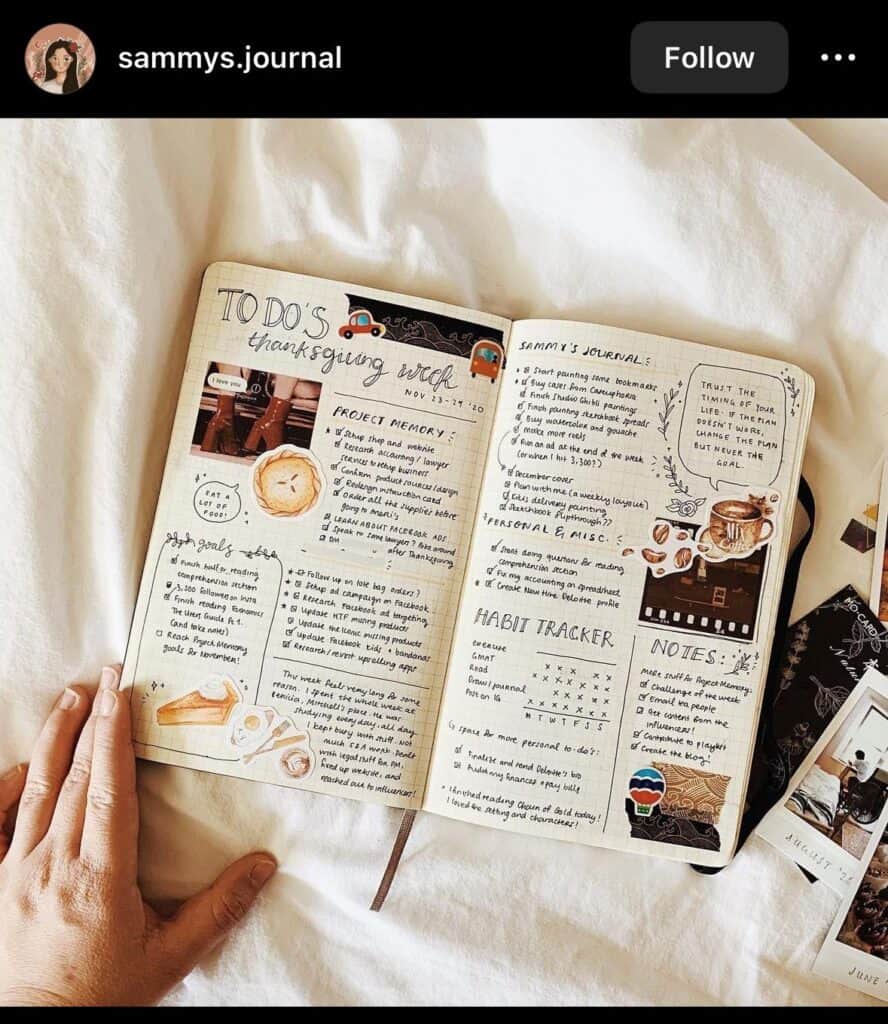 sammys.journal
Follow
TO DO'S
thanksgiving week
NOV 23-29 '20
I love you
EAT A
LOT OF
FOOD!
goals
Finish half of reading
comprehension section
3,000 followers on insta
Finish reading Economics
The User's Guide Pt 1.
(and take notes)
Reach Project Memory
goals for November!
PROJECT MEMORY:
Setup shop and website
Research accounting / lawyer
services to setup business
Confirm product sources/design
Redesign instruction card
Order all the supplies before
going to
LEARN ABOUT FACEBOOK ADS
Speak to some lawyers?
after Thanksgiving
Follow up on tote bag orders?
Setup ad campaign on Facebook
Research Facebook ad targeting
Update HTF missing products
Update the iconic missing products
Update Facebook kids + bandanas
Research/revisit upselling apps
This week feels very long for some
reason. I spent the whole week at
Mitchell's place. He was
studying every day, all day.
I kept busy with stuff. Not
much work. Dealt
with legal stuff for PM,
fixed up website, and
reached out to influencers!
SAMMY'S JOURNAL:
Start painting some bookmarks
Buy cases from Caseuphoria
Finish Studio Ghibli paintings
Finish painting sketchbook spreads
Buy watercolor and gouache
make more reels
Run an ad at the end of the week
(or when I hit 3,300?)
December cover
Plan with me (a weekly layout)
Kiki's delivery painting
Sketchbook flipthrough??
TRUST THE
TIMING OF YOUR
LIFE. IF THE PLAN
DOESN'T WORK,
CHANGE THE PLAN
BUT NEVER THE
GOAL.
PERSONAL & MISC.:
Start doing questions for reading
comprehension section
Fix my accounting on spreadsheet
Create New Hire Deloitte profile
Coffee
HABIT TRACKER
exercise
GMAT
Read
Draw/journal
Post on IG
M T W T F S S
space for more personal to-do's:
Finalize and send Deloitte's bio
Audit my finances + pay bills
I finished reading Chain of Gold today!
I loved the setting and characters!
NOTES:
More stuff for Project Memory:
Challenge of the week
Email tea people
Get content from the
influencers!
Contribute to playlist
Create the blog!
MO CARD
AUGUST '20
JUNE